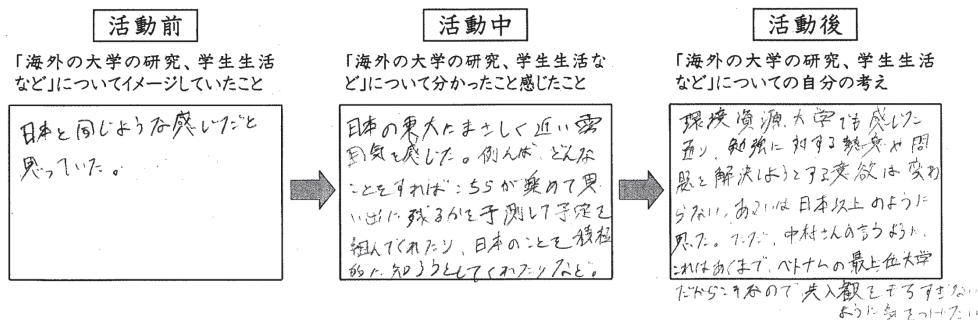 活動前
「海外の大学の研究、学生生活
など」についてイメージしていたこと
日本と同じような感じだと
思っていた。
活動中
「海外の大学の研究、学生生活な
ど」について分かったこと感じたこと
日本の東大にまさしく近い雰
囲気を感じた。例えば、どんな
ことをすればこちらが楽めて思
い出に残るかを予測して予定を
組んでくれたり、日本のことを積極
的に知ろうとしてくれたりなど。
活動後
「海外の大学の研究、学生生活
など」についての自分の考え
環境資源大学でも感じた
通り、勉強に対する熱意や問
題を解決しようとする意欲は変わ
らない、あるいは日本以上のように
思った。ただ、中村さんの言うように、
これはあくまで、ベトナムの最上位大学
だからこそなので先入観をもちすぎない
ように気をつけたい